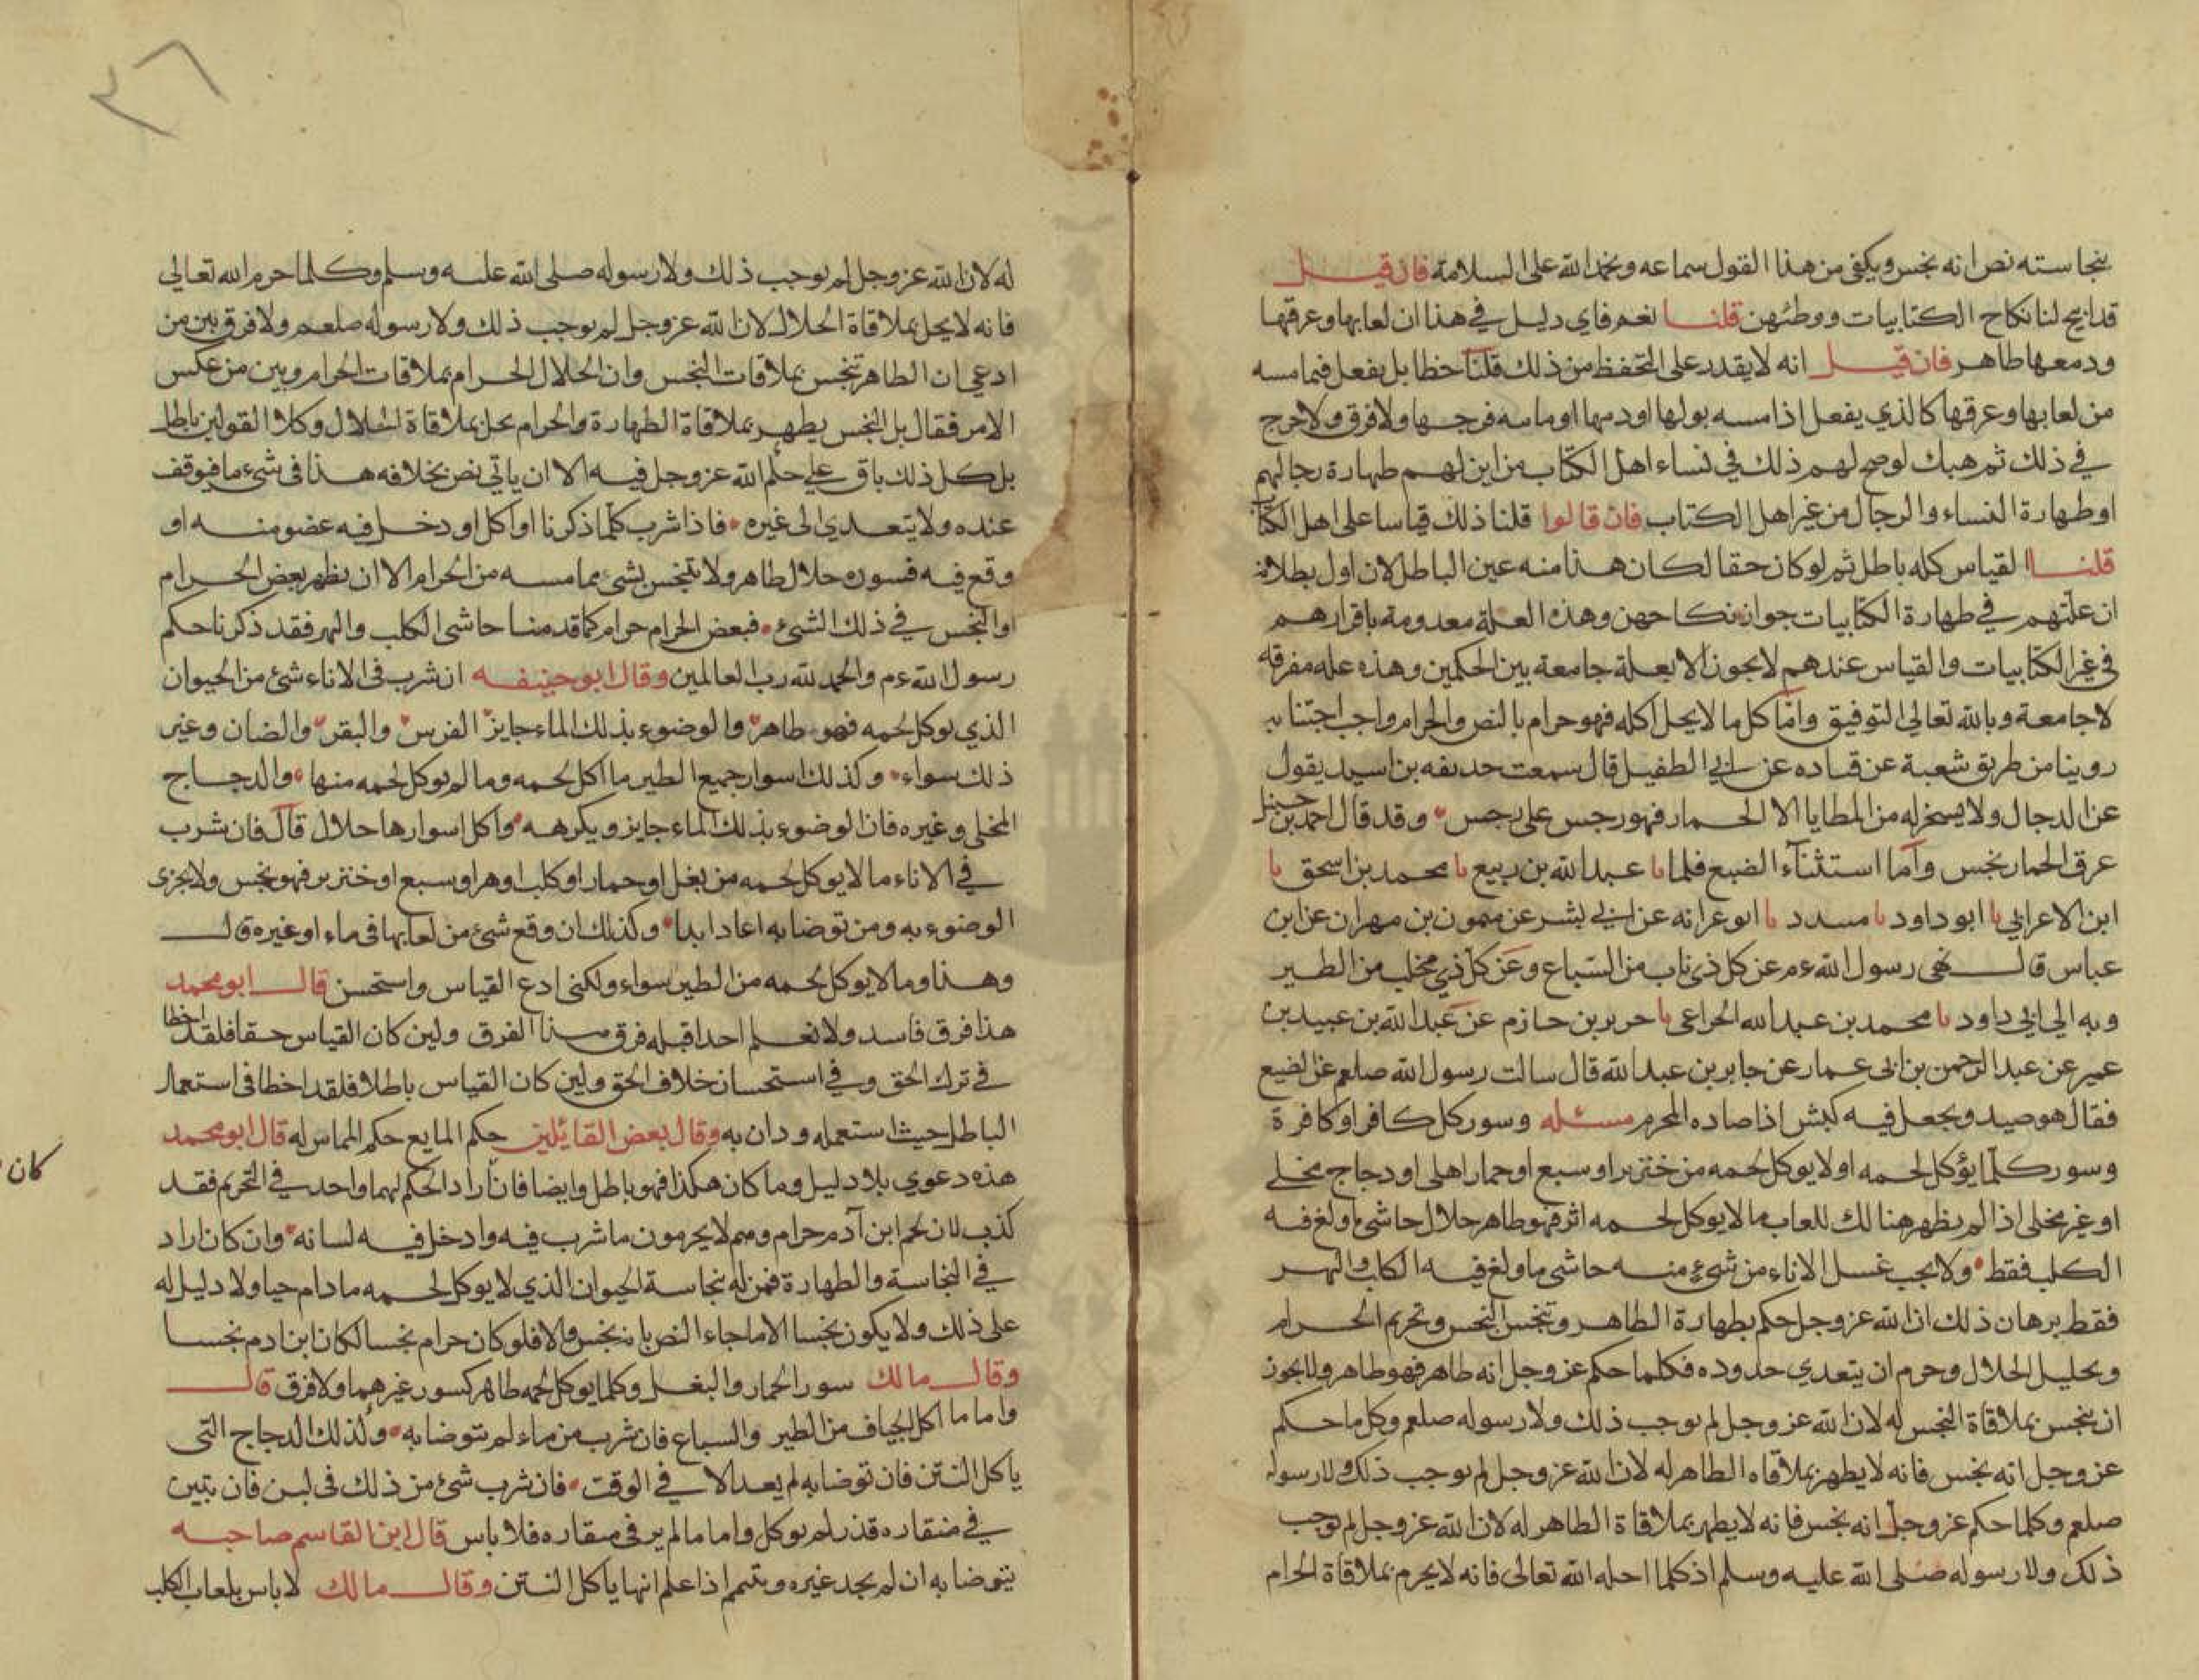 بنجاسته نص انه نجس ويكفي من هذا القول سماعه ونحمد الله على السلامة فان قيل
قد ابيح لنا نكاح الكتابيات ووطئهن قلنا نعم فاي دليل في هذا ان لعابها وعرقها
ودمعها طاهر فان قيل انه لا يقدر على التحفظ من ذلك قلنا خطا بل يفعل فيما مسه
من لعابها وعرقها كالذي يفعل اذا مسه بولها او دمها او ماسه فرجها ولا فرق ولا حرج
في ذلك ثم هبك لو صح لهم ذلك في نساء اهل الكتاب من اين لهم طهارة رجالهم
او طهارة النساء والرجال من غير اهل الكتاب فان قالوا قلنا ذلك قياسا على اهل الكتاب
قلنا القياس كله باطل ثم لو كان حقا لكان هذا منه عين الباطل لان اول بطلانه
ان علتهم في طهارة الكتابيات جواز نكاحهن وهذه العلة معدومة باقرارهم
في غير الكتابيات والقياس عندهم لا يجوز الا بعلة جامعة بين الحكمين وهذه علة مفرقة
لا جامعة وبالله تعالى التوفيق واما كل ما لا يحل اكله فهو حرام بالنص والحرام واجب اجتنابه
روينا من طريق شعبة عن قتاده عن ابي الطفيل قال سمعت حديفه بن اسيد يقول
عن الدجال ولا يسخر له من المطايا الا الحمار فهو رجس على رجس وقد قال احمد بن حنبل
عرق الحمار نجس واما استثناء الضبع فلما نا عبد الله بن ربيع نا محمد بن اسحق نا
ابن الاعرابي نا ابو داود نا مسدد نا ابو عوانه عن ابي بشر عن ميمون بن مهران عن ابن
عباس قال نهى رسول الله ءم عن كل ذي ناب من السباع وعن كل ذي مخلب من الطير
وبه الى ابي داود نا محمد بن عبد الله الخزاعي نا جرير بن حازم عن عبد الله بن عبيد بن
عمير عن عبد الرحمن بن ابي عمار عن جابر بن عبد الله قال سالت رسول الله صلعم عن الضبع
فقال هو صيد ويجعل فيه كبش اذا صاده المحرم مسئله وسور كل كافر او كافرة
وسور كلما يؤكل لحمه او لا يوكل لحمه من خنزير او سبع او حمار اهلي او دجاج مخلى
او غير مخلى اذا لم يظهر هنالك للعاب ما لا يوكل لحمه اثر فهو طاهر حلال حاشى ما ولغ فيه
الكلب فقط ولا يجب غسل الاناء من شيء منه حاشى ما ولغ فيه الكلب والهر
فقط برهان ذلك ان الله عز وجل حكم بطهارة الطاهر وتنجس النجس وتحريم الحرام
وتحليل الحلال وحرم ان يتعدى حدوده فكلما حكم عز وجل انه طاهر فهو طاهر ولا يجوز
ان ينجس بملاقاة النجس له لان الله عز وجل لم يوجب ذلك ولا رسوله صلعم وكل ما حكم
عز وجل انه نجس فانه لا يطهر بملاقاه الطاهر له لان الله عز وجل لم يوجب ذلك ولا رسوله
صلعم وكلما حكم عز وجل انه نجس فانه لا يطهر بملاقاة الطاهر له لان الله عز وجل لم يوجب
ذلك ولا رسوله صلى الله عليه وسلم اذ كلما احله الله تعالى فانه لا يحرم بملاقاة الحرام
٣٦
له لان الله عز وجل لم يوجب ذلك ولا رسوله صلى الله عليه وسلم وكلما حرم الله تعالى
فانه لا يحل بملاقاة الحلال لان الله عز وجل لم يوجب ذلك ولا رسوله صلعم ولا فرق بين من
ادعى ان الطاهر يتنجس بملاقات النجس وان الحلال الحرام بملاقات الحرام وبين من عكس
الامر فقال بل النجس يطهر بملاقاة الطهارة والحرام يحل بملاقاة الحلال وكلا القولين باطل
بل كل ذلك باق على حكم الله عز وجل فيه الا ان ياتي نص بخلافه هذا في شيء ما فيوقف
عنده ولا يتعدى الى غيره فاذا شرب كلما ذكرنا او اكل او دخل فيه عضو منه او
وقع فيه فسوره حلال طاهر ولا يتنجس بشيء مما مسه من الحرام الا ان يظهر بعض الحرام
او النجس في ذلك الشيء فبعض الحرام حرام كما قدمنا حاشى الكلب والهر فقد ذكرنا حكم
رسول الله ءم والحمد لله رب العالمين وقال ابو حنيفه ان شرب في الاناء شئ من الحيوان
الذي يوكل لحمه فهو طاهر والوضوء بذلك الماء جايز الفرس والبقر والضان وغير
ذلك سواء وكذلك اسوار جميع الطير ما اكل لحمه وما لم يوكل لحمه منها والدجاج
المخلى وغيره فان الوضوء بذلك الماء جايز ويكرهه واكل اسوارها حلال قال فان شرب
في الاناء ما لا يوكل لحمه من بغل او حمار او كلب او هر او سبع او خنزير فهو نجس ولا يجزى
الوضوء به ومن توضا به اعاد ابدا وكذلك ان وقع شئ من لعابها في ماء او غيره قال
وهذا وما لا يوكل لحمه من الطير سواء ولكني ادع القياس واستحسن قال ابو محمد
هذا فرق فاسد ولا نعلم احدا قبله فرق هذا الفرق ولين كان القياس حقا فلقد اخطا
في ترك الحق وفي استحسان خلاف الحق ولين كان القياس باطلا فلقد اخطا في استعمال
الباطل حيث استعمله ودان به وقال بعض القائلين حكم المايع حكم المماس له قال ابو محمد
هذه دعوى بلا دليل وما كان هكذا فهو باطل وايضا فان اراد الحكم لهما واحد في التحريم فقد
كذب لان لحم ابن آدم حرام وهم لا يحرمون ما شرب فيه وادخل فيه لسانه وان كان اراد
كان
في النجاسة والطهارة فمن له بنجاسة الحيوان الذي لا يوكل لحمه ما دام حيا ولا دليل له
على ذلك ولا يكون نجسا الا ما جاء النص بانه نجس والا فلو كان حرام نجسا لكان ابن ادم نجسا
وقال مالك سور الحمار والبغل وكلما يوكل لحمه طاهر كسور غيرهما ولا فرق قال
واما ما اكل الجياف من الطير والسباع فان شرب من ماء لم يتوضا به وكذلك الدجاج التي
ياكل النتن فان توضا به لم يعد الا في الوقت فان شرب شئ من ذلك في لبن فان تبين
في منقاره قذر لم يوكل واما ما لم ير في منقاره فلا باس قال ابن القاسم صاحبه
يتوضا به ان لم يجد غيره ويتيمم اذا علم انها ياكل النتن وقال مالك لا باس بلعاب الكلب